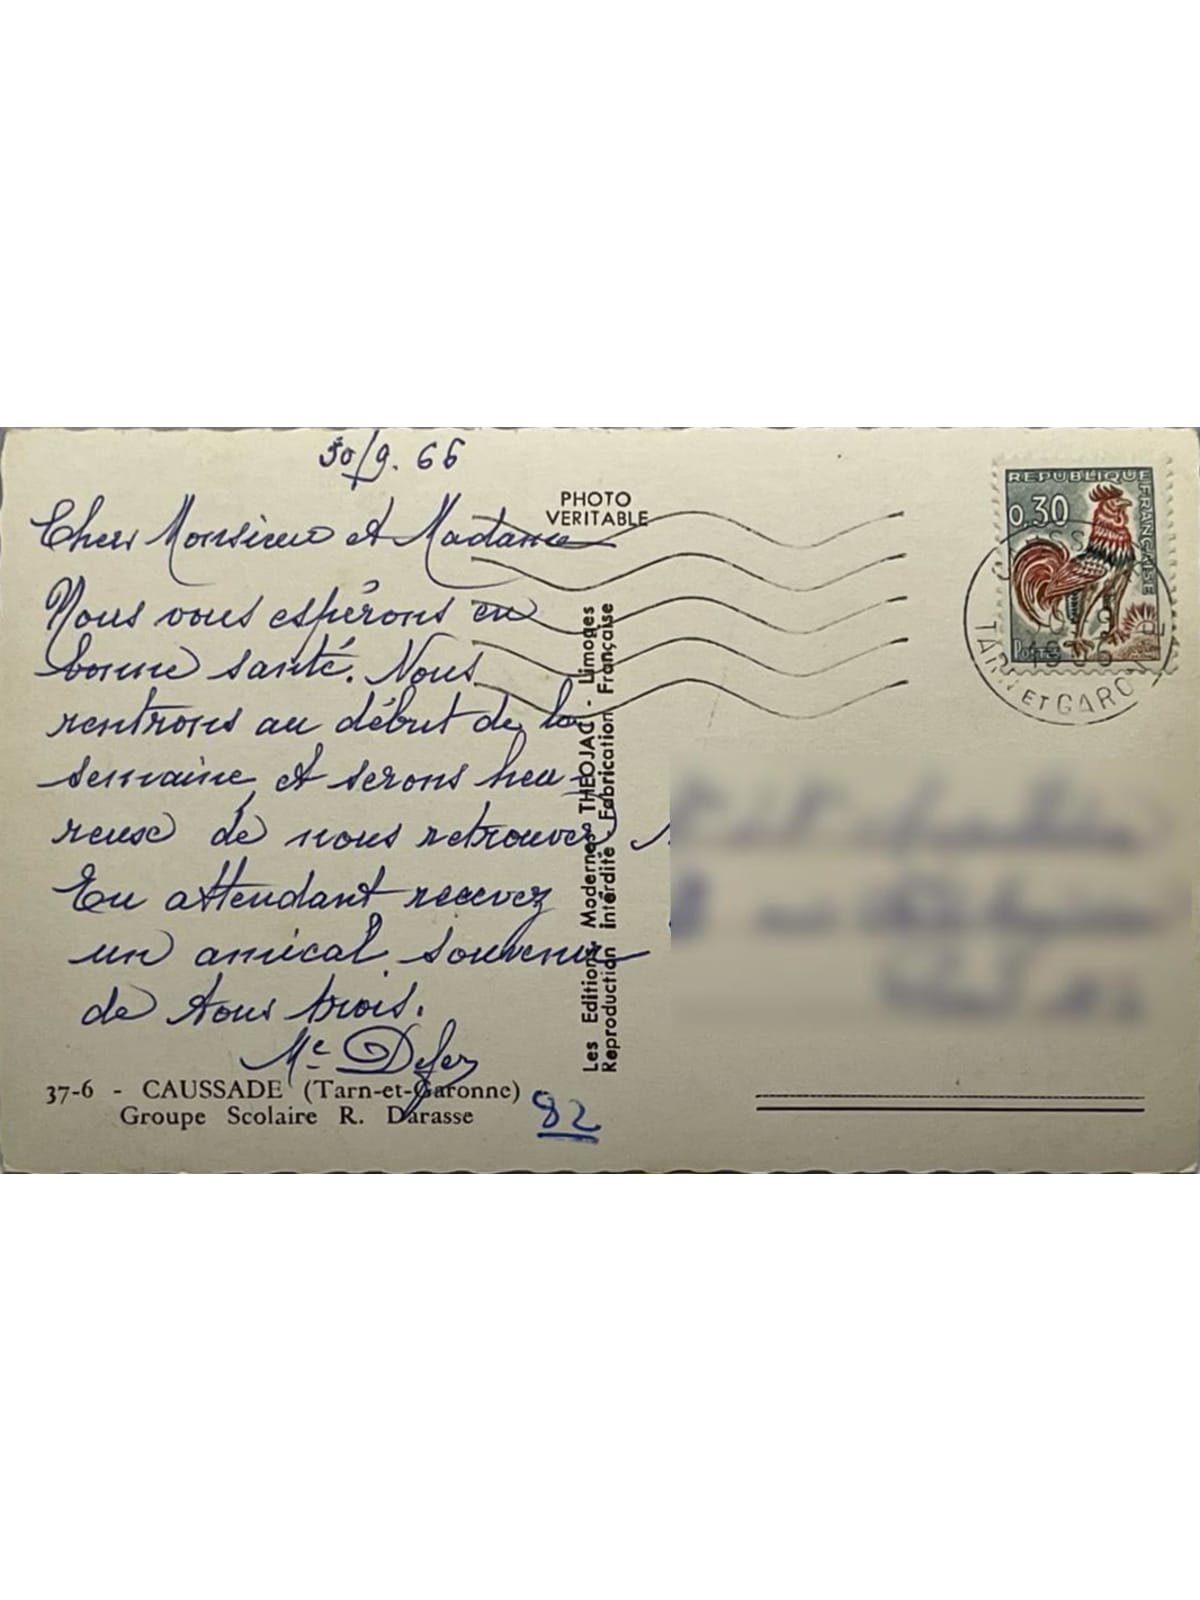 30/9. 66
Chers Monsieur et Madame
Nous vous espérons en
bonne santé. Nous
rentrons au début de la
semaine, et serons heu-
reuse de nous retrouver
En attendant recevez
un amical souvenir
de tous trois.
Me
37-6 - CAUSSADE (Tarn-et-Garonne)
Groupe Scolaire R. Darasse
82
PHOTO
VERITABLE
Les Editions Modernes THEOJAC - Limoges
Reproduction intérdite - Fabrication Française
REPUBLIQUE FRANCAISE
0,30
POSTES
TARN ET GARONNE